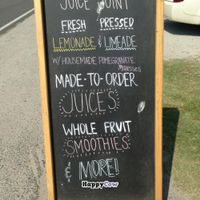 JUICE JOINT
FRESH PRESSED
LEMONADE & LIMEADE
W/ HOUSEMADE POMEGRANATE
MOLASSES
MADE-TO-ORDER
JUICES
WHOLE FRUIT
SMOOTHIES
& MORE!
HappyCow